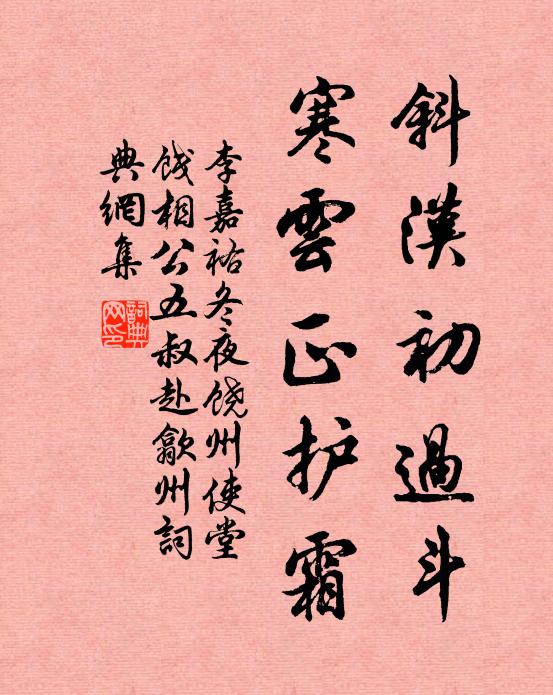 斜漢初過斗
寒雲正护霜
李嘉祐冬夜饶州使堂
饯相公五叔赴歙州詞
典網集
詞典
网印